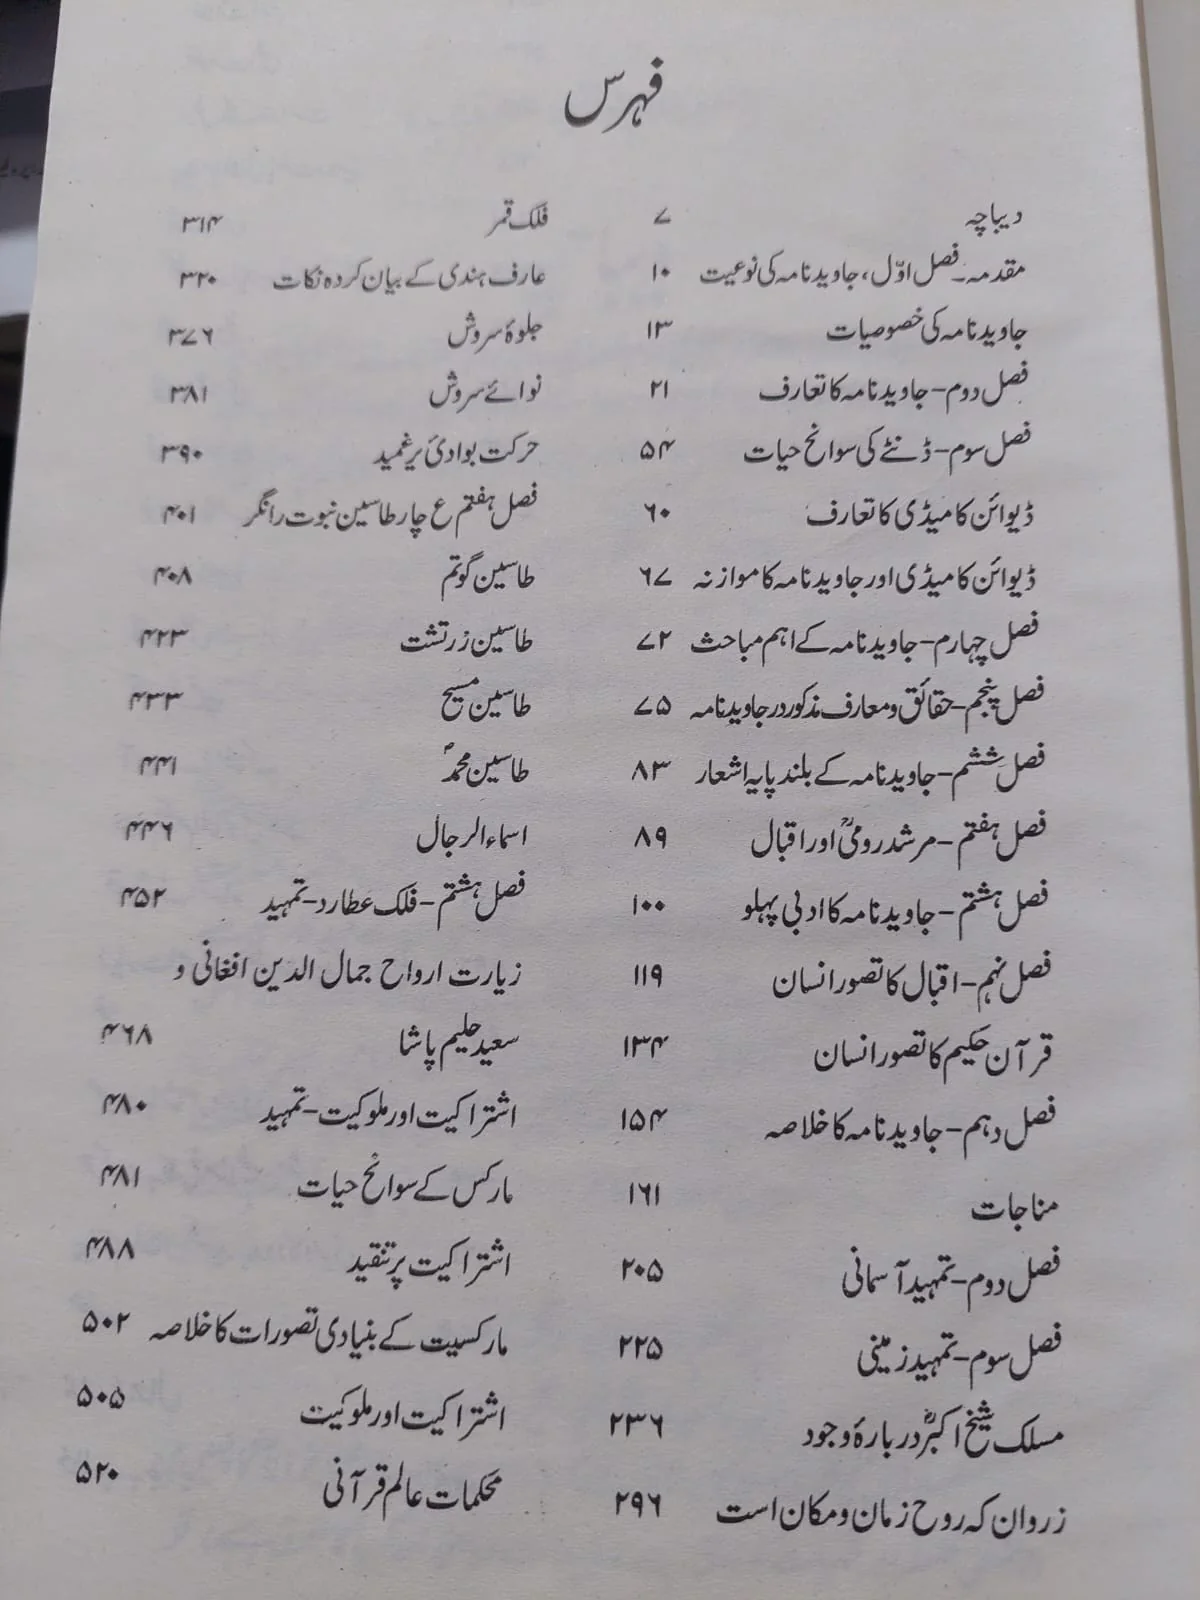 فہرس
دیباچہ ۷
مقدمہ۔ فصل اوّل، جاوید نامہ کی نوعیت ۱۰
جاوید نامہ کی خصوصیات ۱۳
فصل دوم – جاوید نامہ کا تعارف ۲۱
فصل سوم – ڈنٹے کی سوانح حیات ۵۴
ڈیوائن کامیڈی کا تعارف ۶۰
ڈیوائن کامیڈی اور جاوید نامہ کا موازنہ ۶۷
فصل چہارم – جاوید نامہ کے اہم مباحث ۷۲
فصل پنجم – حقائق و معارف مذکور در جاوید نامہ ۷۵
فصل ششم – جاوید نامہ کے بلند پایہ اشعار ۸۳
فصل ہفتم – مرشد رومیؒ اور اقبال ۸۹
فصل ہشتم – جاوید نامہ کا ادبی پہلو ۱۰۰
فصل نہم – اقبال کا تصور انسان ۱۱۹
قرآن حکیم کا تصور انسان ۱۳۴
فصل دہم – جاوید نامہ کا خلاصہ ۱۵۴
مناجات ۱۶۱
فصل دوم – تمہید آسمانی ۲۰۵
فصل سوم – تمہید زمینی ۲۲۵
مسلک شیخ اکبرؒ دربارۂ وجود ۲۳۶
زروان کہ روح زمان و مکان است ۲۹۶
فلک قمر ۳۱۴
عارف ہندی کے بیان کردہ نکات ۳۲۰
جلوۂ سروش ۳۷۶
نوائے سروش ۳۸۱
حرکت بوادیٔ یرغمید ۳۹۰
فصل ہفتم ع چار طاسین نبوت را نگر ۴۰۱
طاسین گوتم ۴۰۸
طاسین زرتشت ۴۲۳
طاسین مسیح ۴۳۳
طاسین محمدؐ ۴۴۱
اسماء الرجال ۴۴۶
فصل ہشتم – فلک عطارد – تمہید ۴۵۲
زیارت ارواح جمال الدین افغانی و
سعید حلیم پاشا ۴۶۸
اشتراکیت اور ملوکیت – تمہید ۴۸۰
مارکس کے سوانح حیات ۴۸۱
اشتراکیت پر تنقید ۴۸۸
مارکسیت کے بنیادی تصورات کا خلاصہ ۵۰۲
اشتراکیت اور ملوکیت ۵۰۵
محکمات عالم قرآنی ۵۲۰